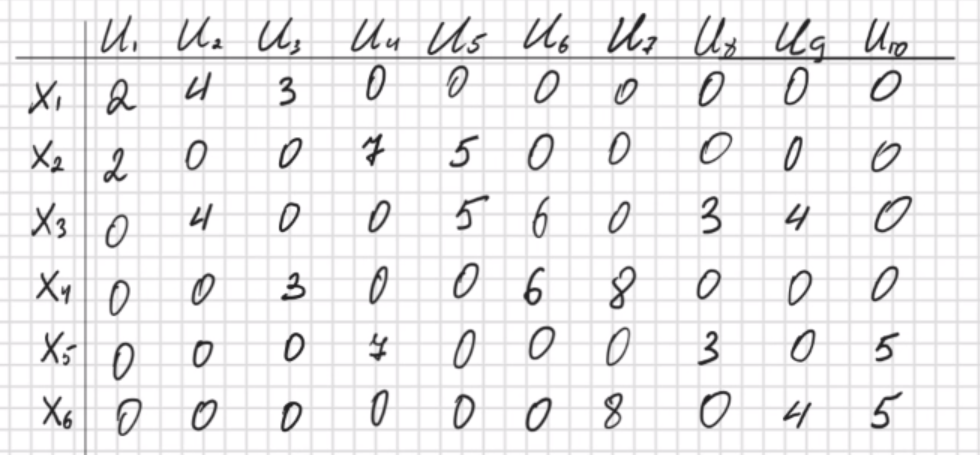 U₁ U₂ U₃ U₄ U₅ U₆ U₇ U₈ U₉ U₁₀
X₁ 2 4 3 0 0 0 0 0 0 0
X₂ 2 0 0 7 5 0 0 0 0 0
X₃ 0 4 0 0 5 6 0 3 4 0
X₄ 0 0 3 0 0 6 8 0 0 0
X₅ 0 0 0 7 0 0 0 3 0 5
X₆ 0 0 0 0 0 0 8 0 4 5